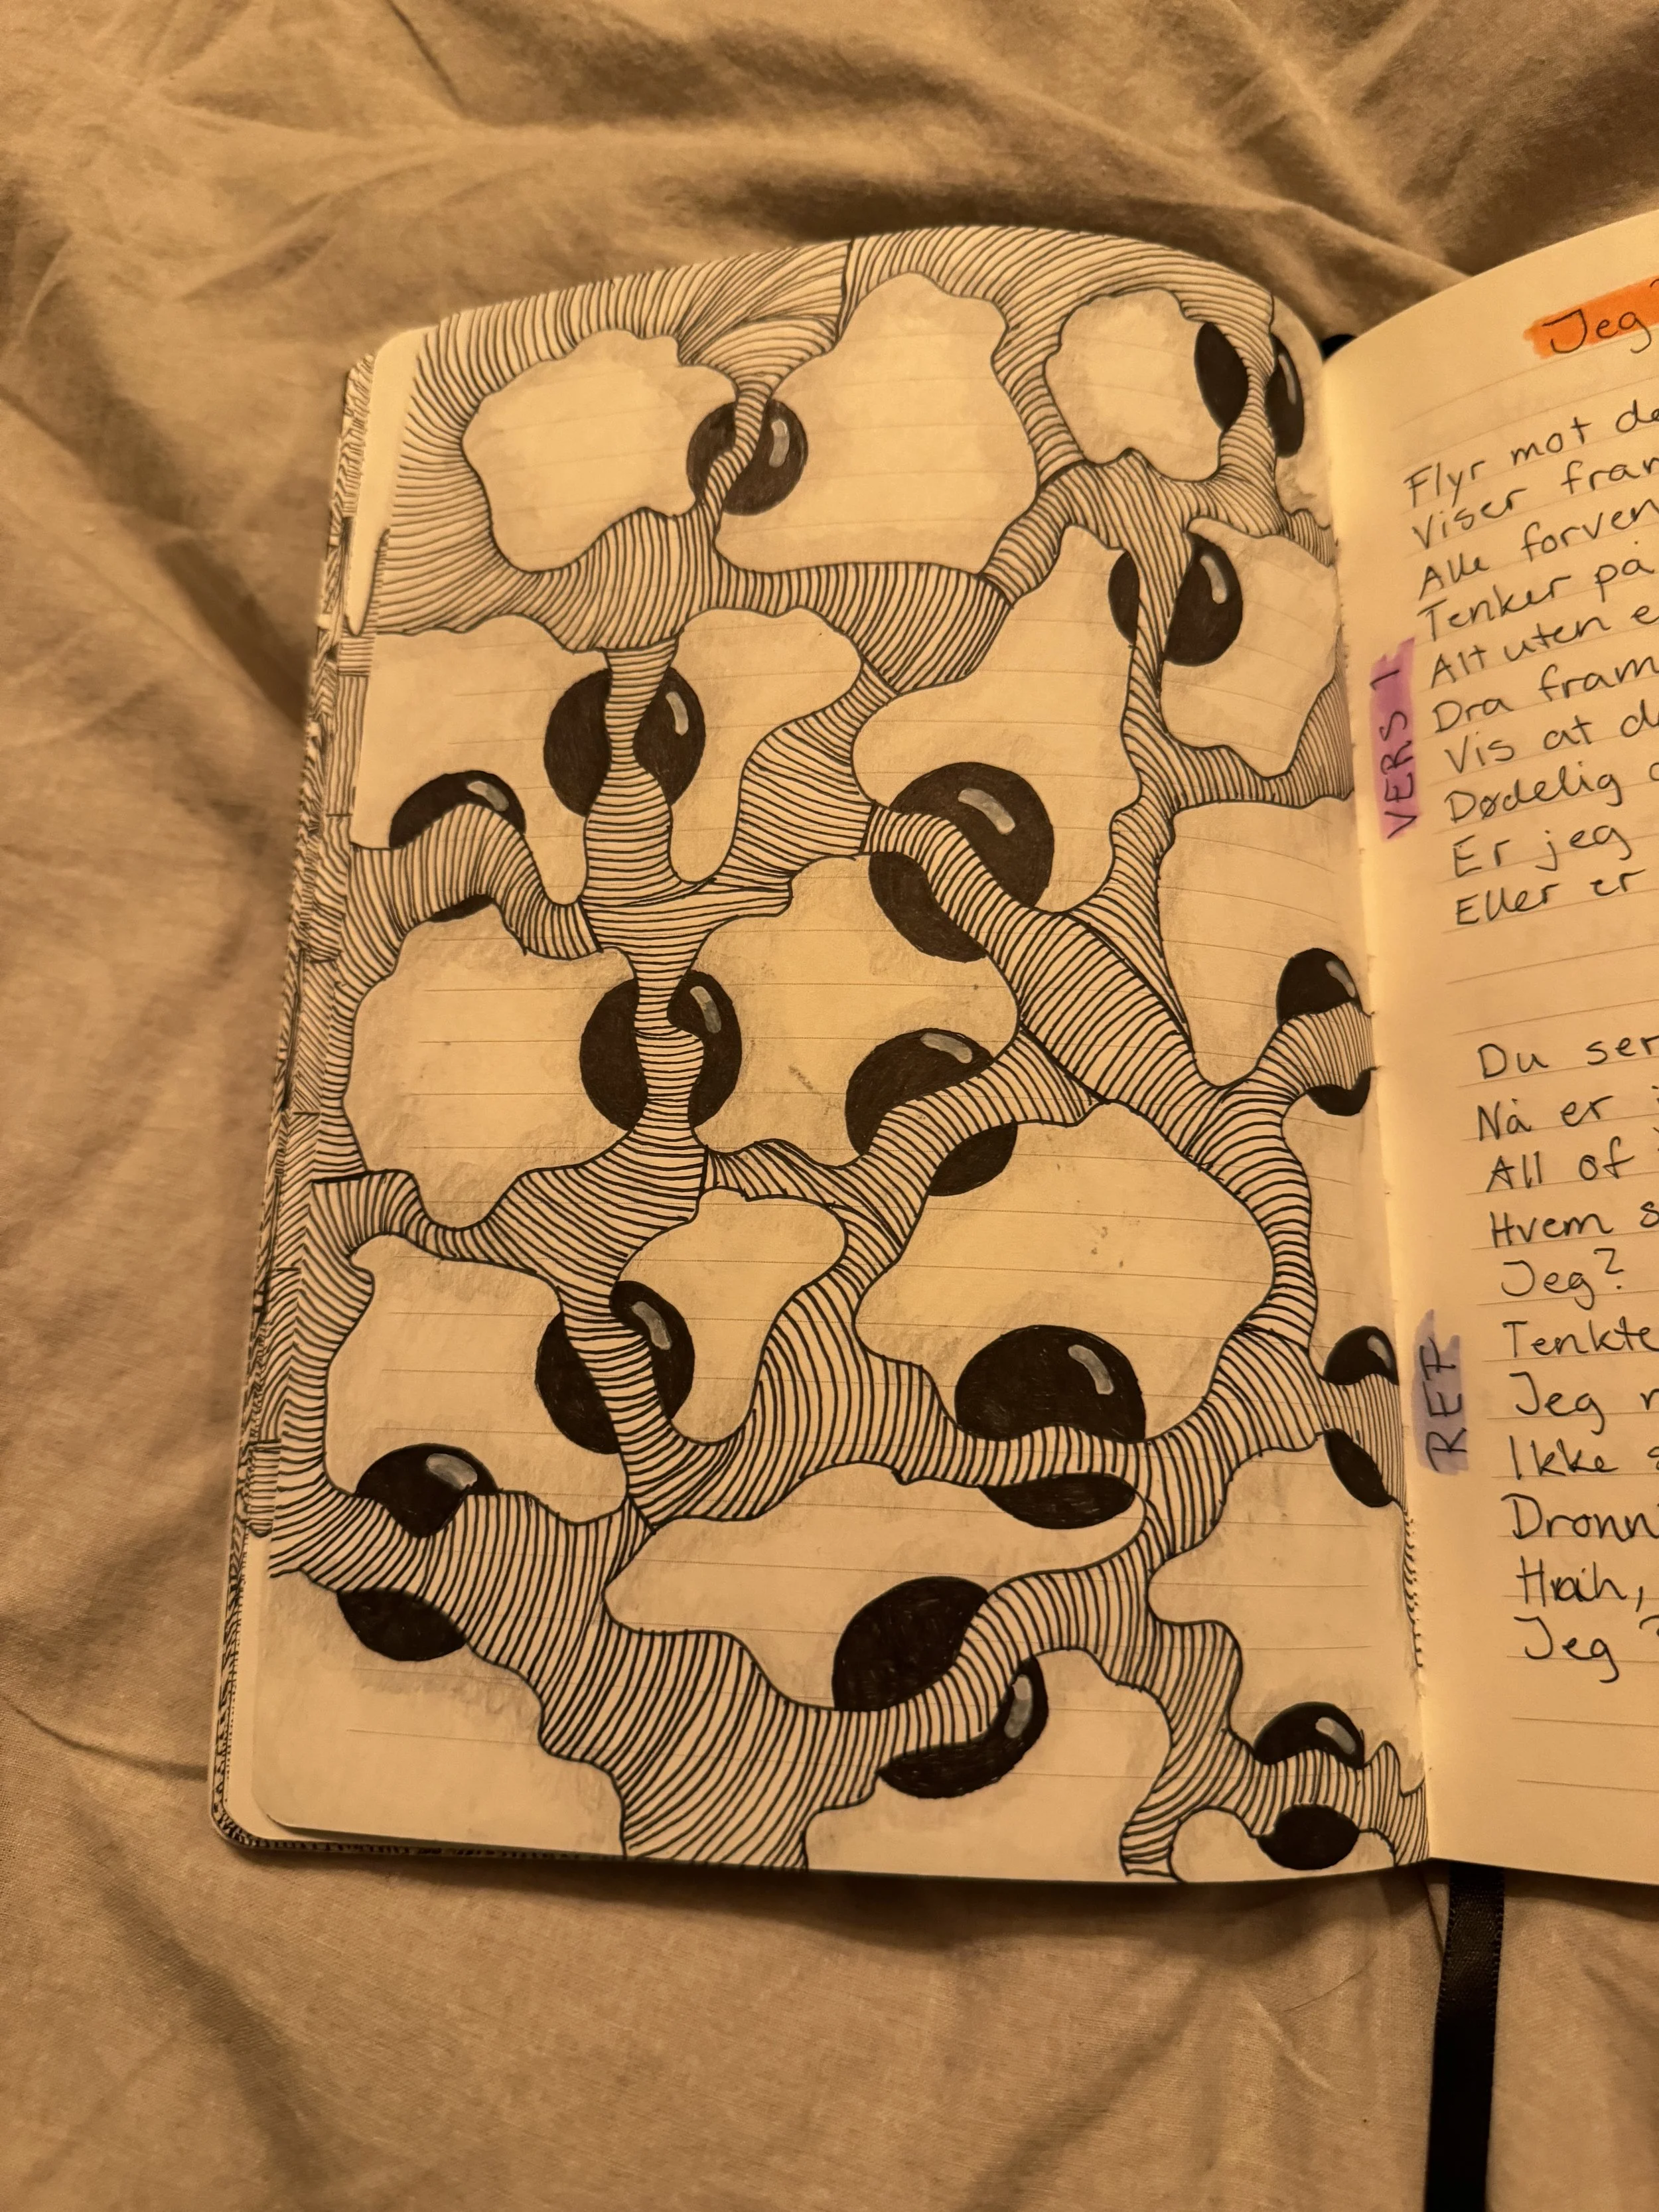 Jeg
Flyr mot de
Viser fram
Alle forven
Tenker på
Alt uten e
Dra fram
Vis at d
Dødelig
Er jeg
Eller er
VERS 1
Du ser
Nå er
All of
Hvem s
Jeg?
Tenkte
Jeg
Ikke s
Dronn
Jeg ?
REF